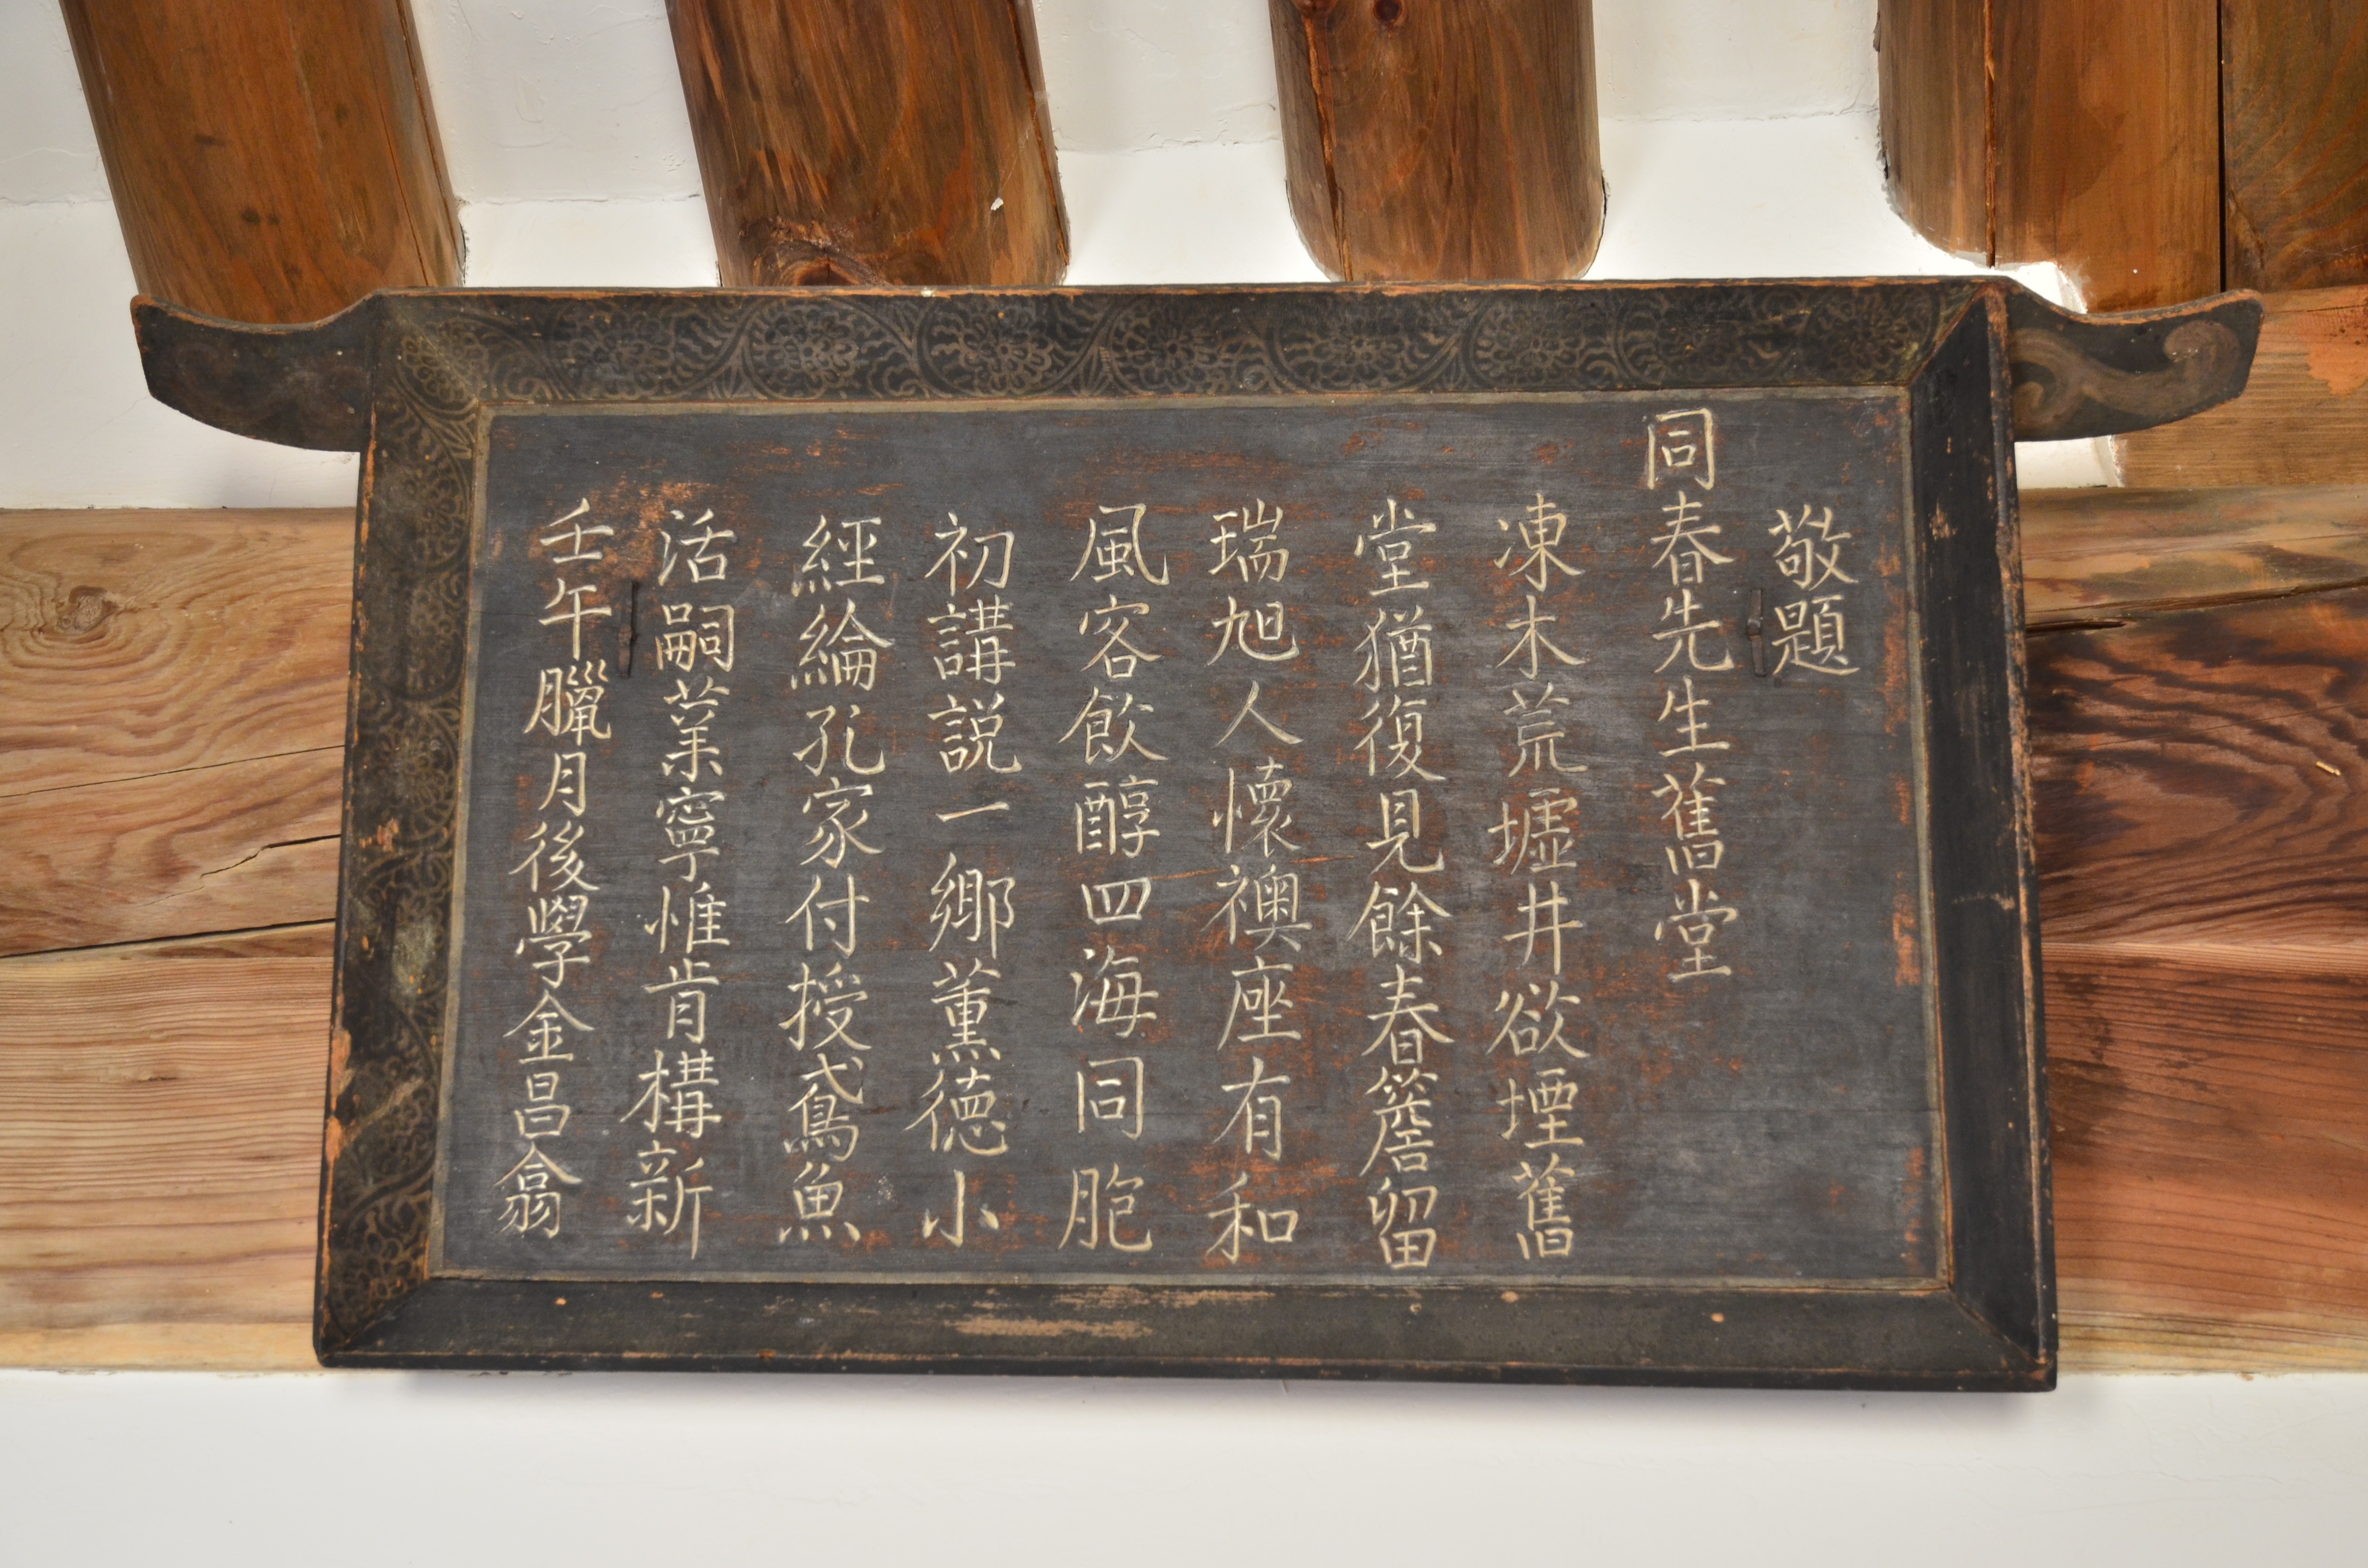 敬題
同春先生舊堂
凍木荒墟井欲堙舊
堂猶復見餘春簷留
瑞旭人懷襖座有和
風客飮醇四海同胞
初講説一鄉薰德小
經綸孔家付授鳶魚
活嗣業寧惟肯構新
壬午臘月後學金昌翕